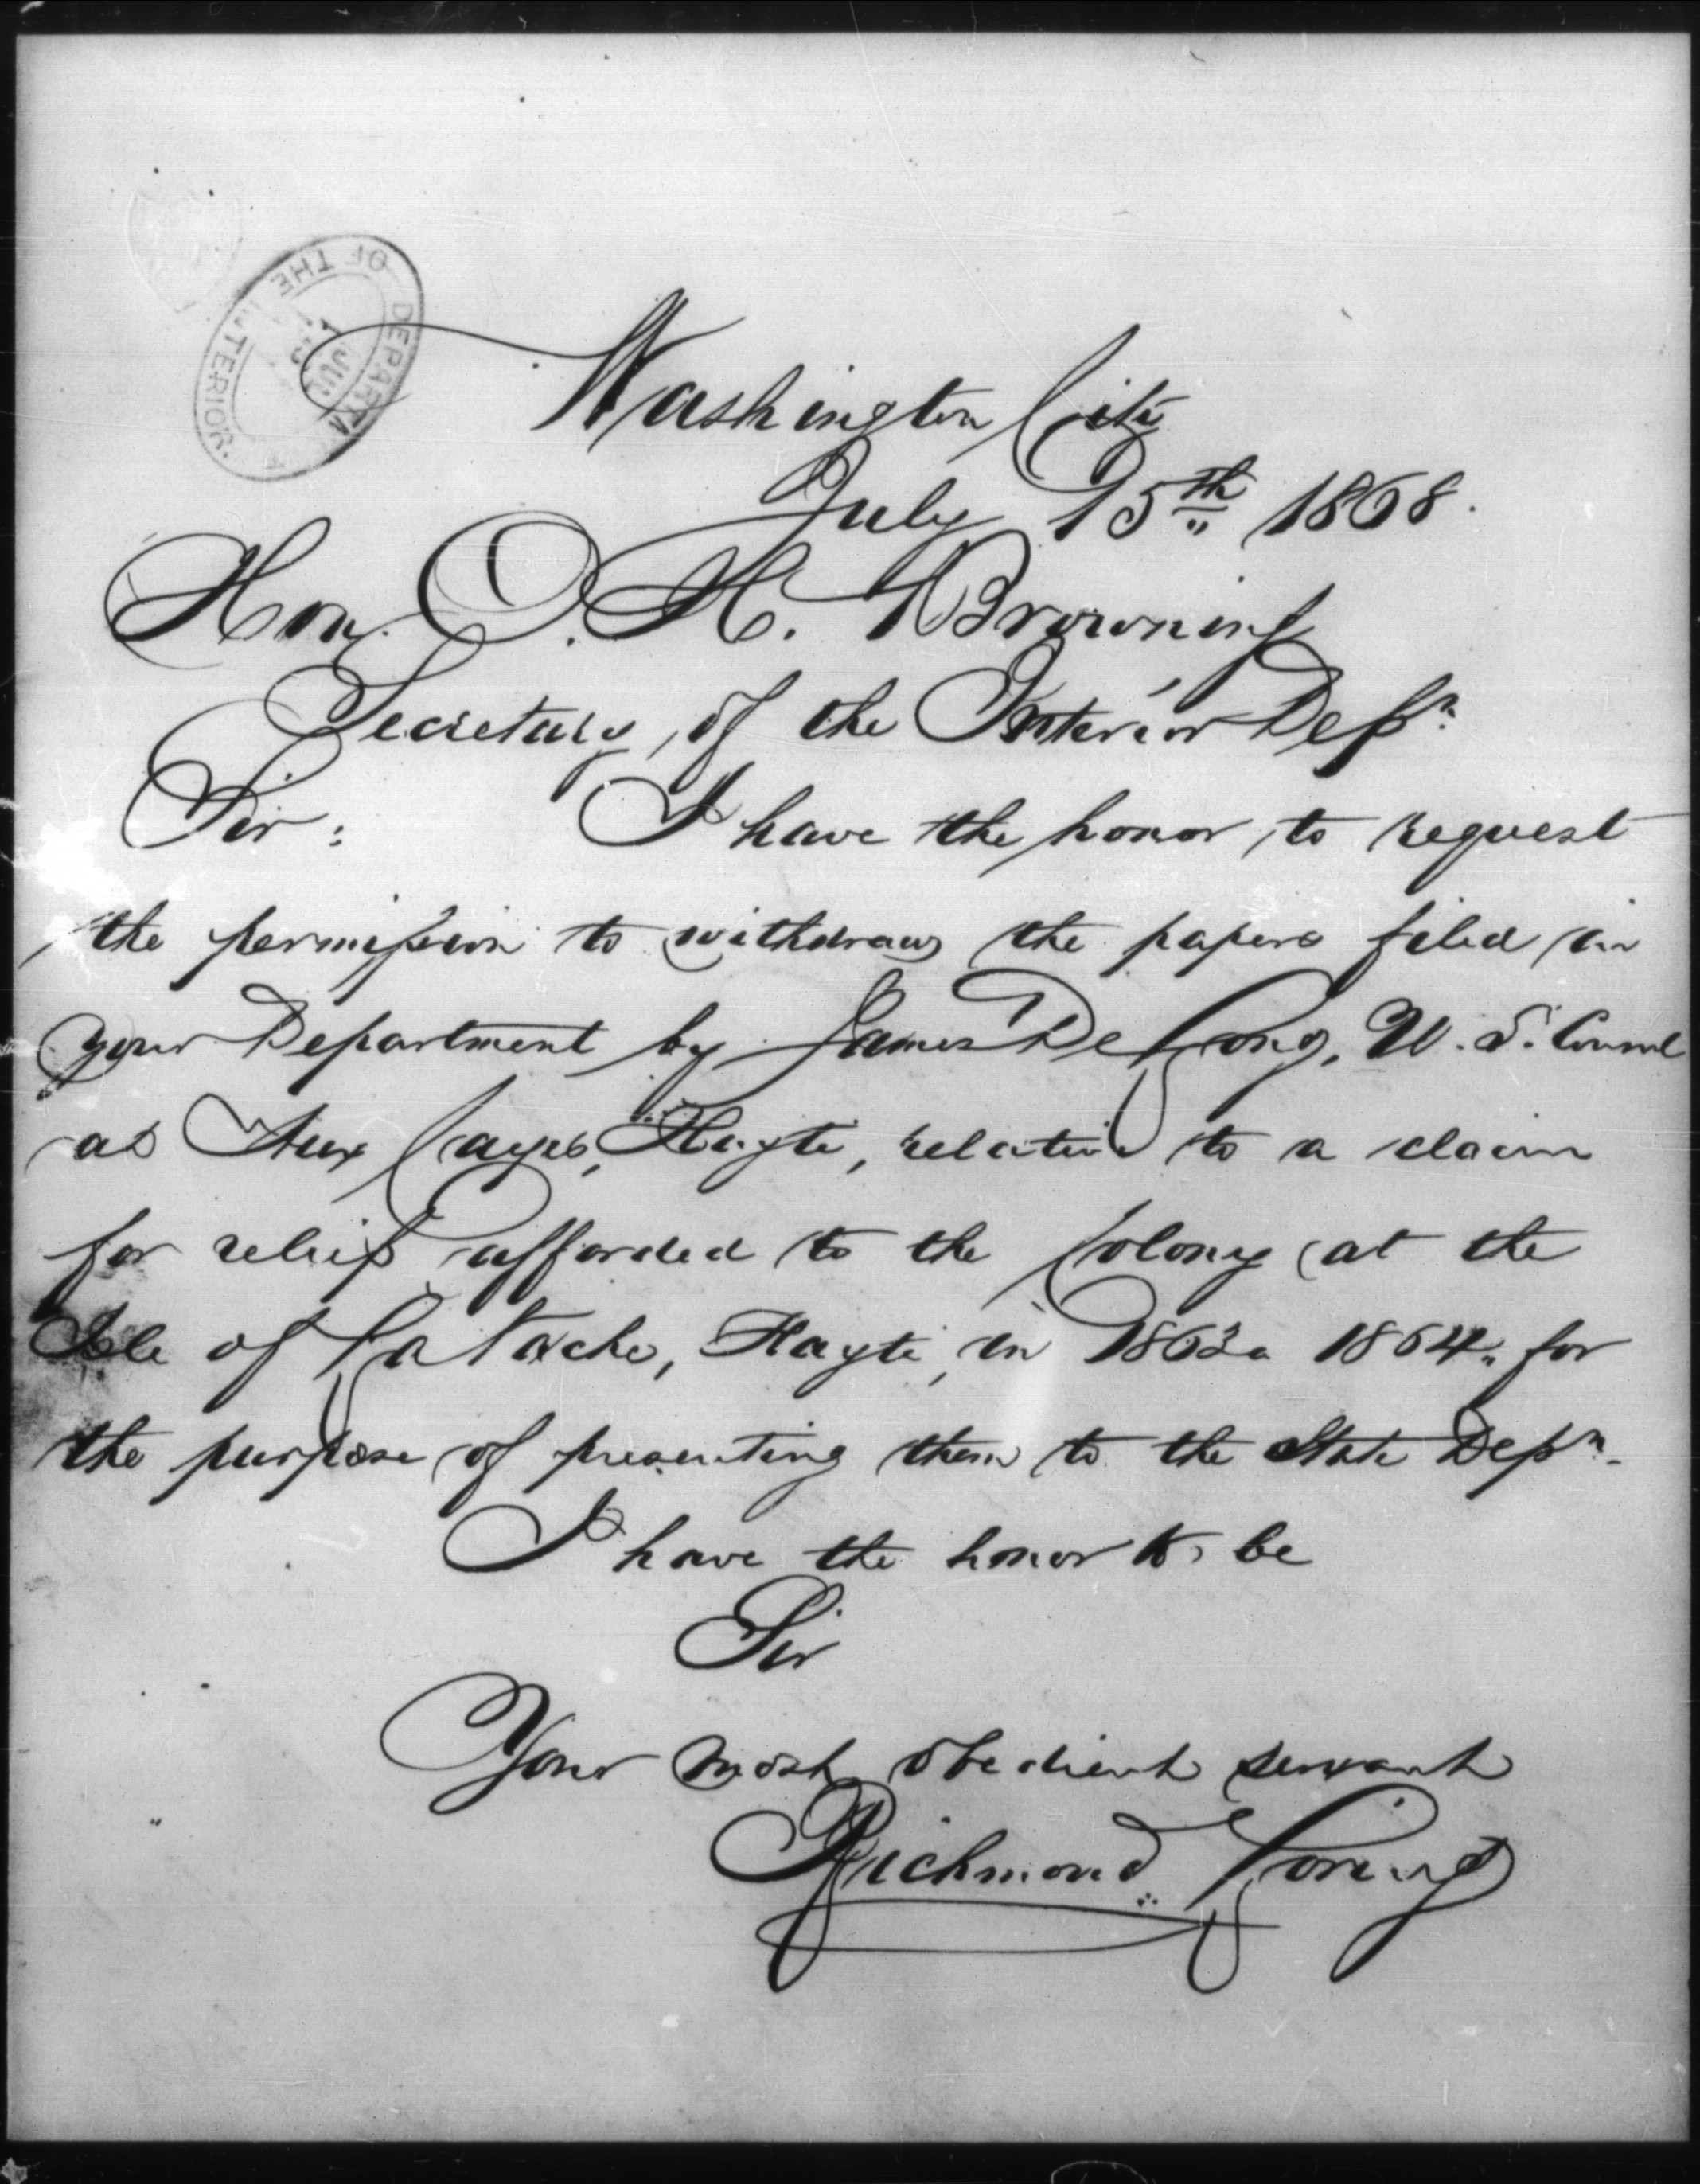 DEPARTM
OF THE INTERIOR.
JUL
Washington City
July 15th 1868.
Hon. O. H. Browning
Secretary, of the Interior Depn
Sir: I have the honor, to request
the permission to withdraw the papers filed in
your Department by James De Long, U. S. Consul
at Aux Cayes, Hayti, relative to a claim
for relief afforded to the Colony at the
Isle of La Vache, Hayti, in 1863 a 1864, for
the purpose of presenting them to the State Depn.
I have the honor to be
Sir
Your most obedient servant
Richmond Loring